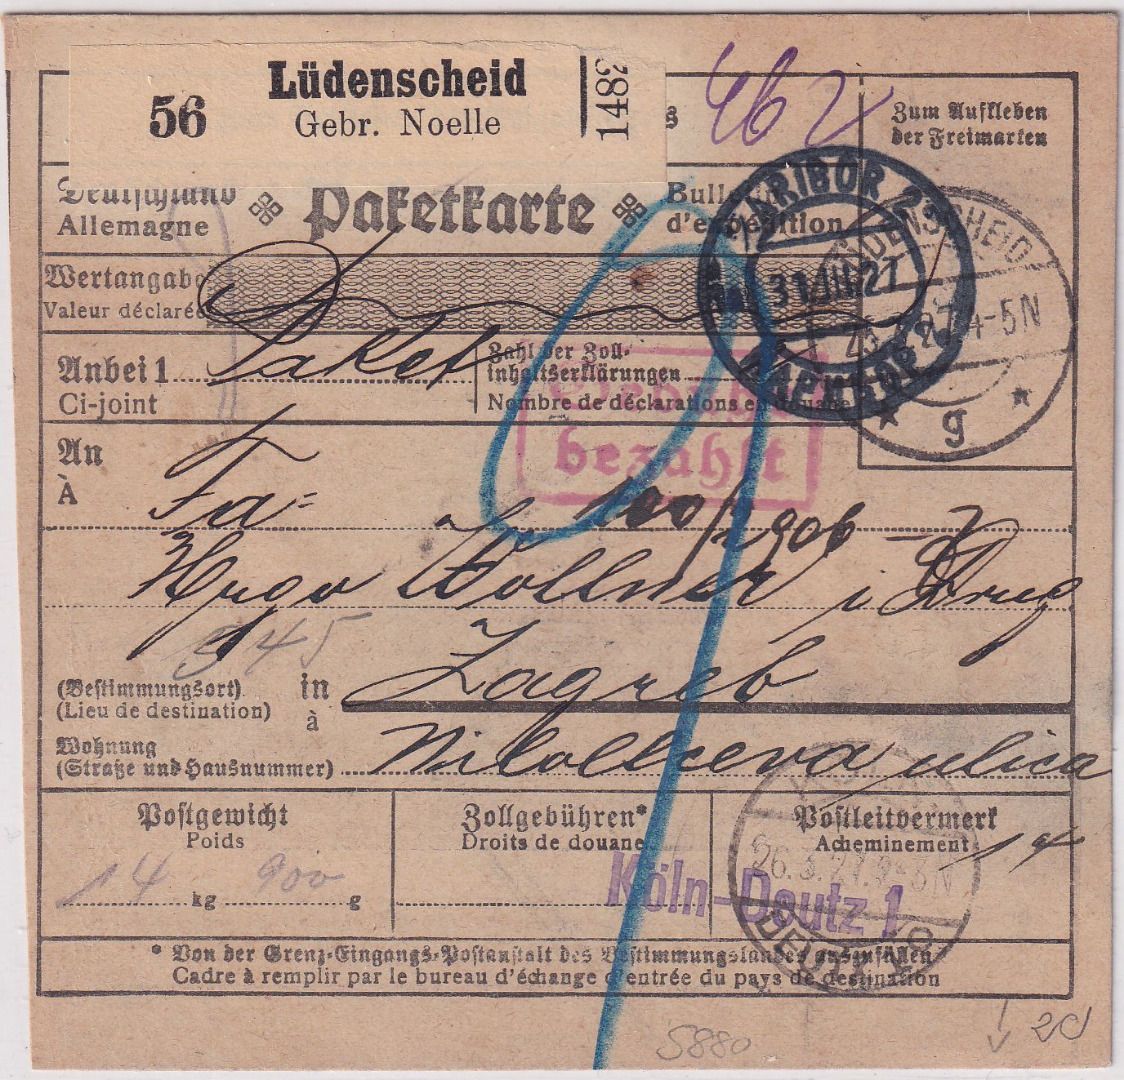 56
Lüdenscheid
Gebr. Noelle
1482
462
Zum Aufkleben
der Freimarken
Deutschland
Allemagne
Paketkarte
d'expédition
MARIBOR 2
31.III.27
МАРИБОР
LÜDENSCHEID
4-5N
* g *
Wertangabe
Valeur déclarée
Anbei 1 Paket
Ci-joint
Zahl der Zoll-
inhaltserklärungen
Nombre de déclarations en douane
bezahlt
An
À
Fa:
Hugo Wollner i Drug
345
(Bestimmungsort)
(Lieu de destination)
in
à
Zagreb
Wohnung
(Straße und Hausnummer)
ulica
Postgewicht
Poids
14 kg 900 g
Zollgebühren*
Droits de douane
Postleitvermerk
Acheminement
14
Köln-Deutz 1
26.3.27
* Von der Grenz-Eingangs-Postanstalt des Bestimmungslandes auszufüllen
Cadre à remplir par le bureau d'échange d'entrée du pays de destination
5880